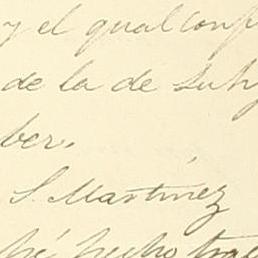 y el qual conf
de la de Suh
ber.
S. Martinez
hé hecho trac